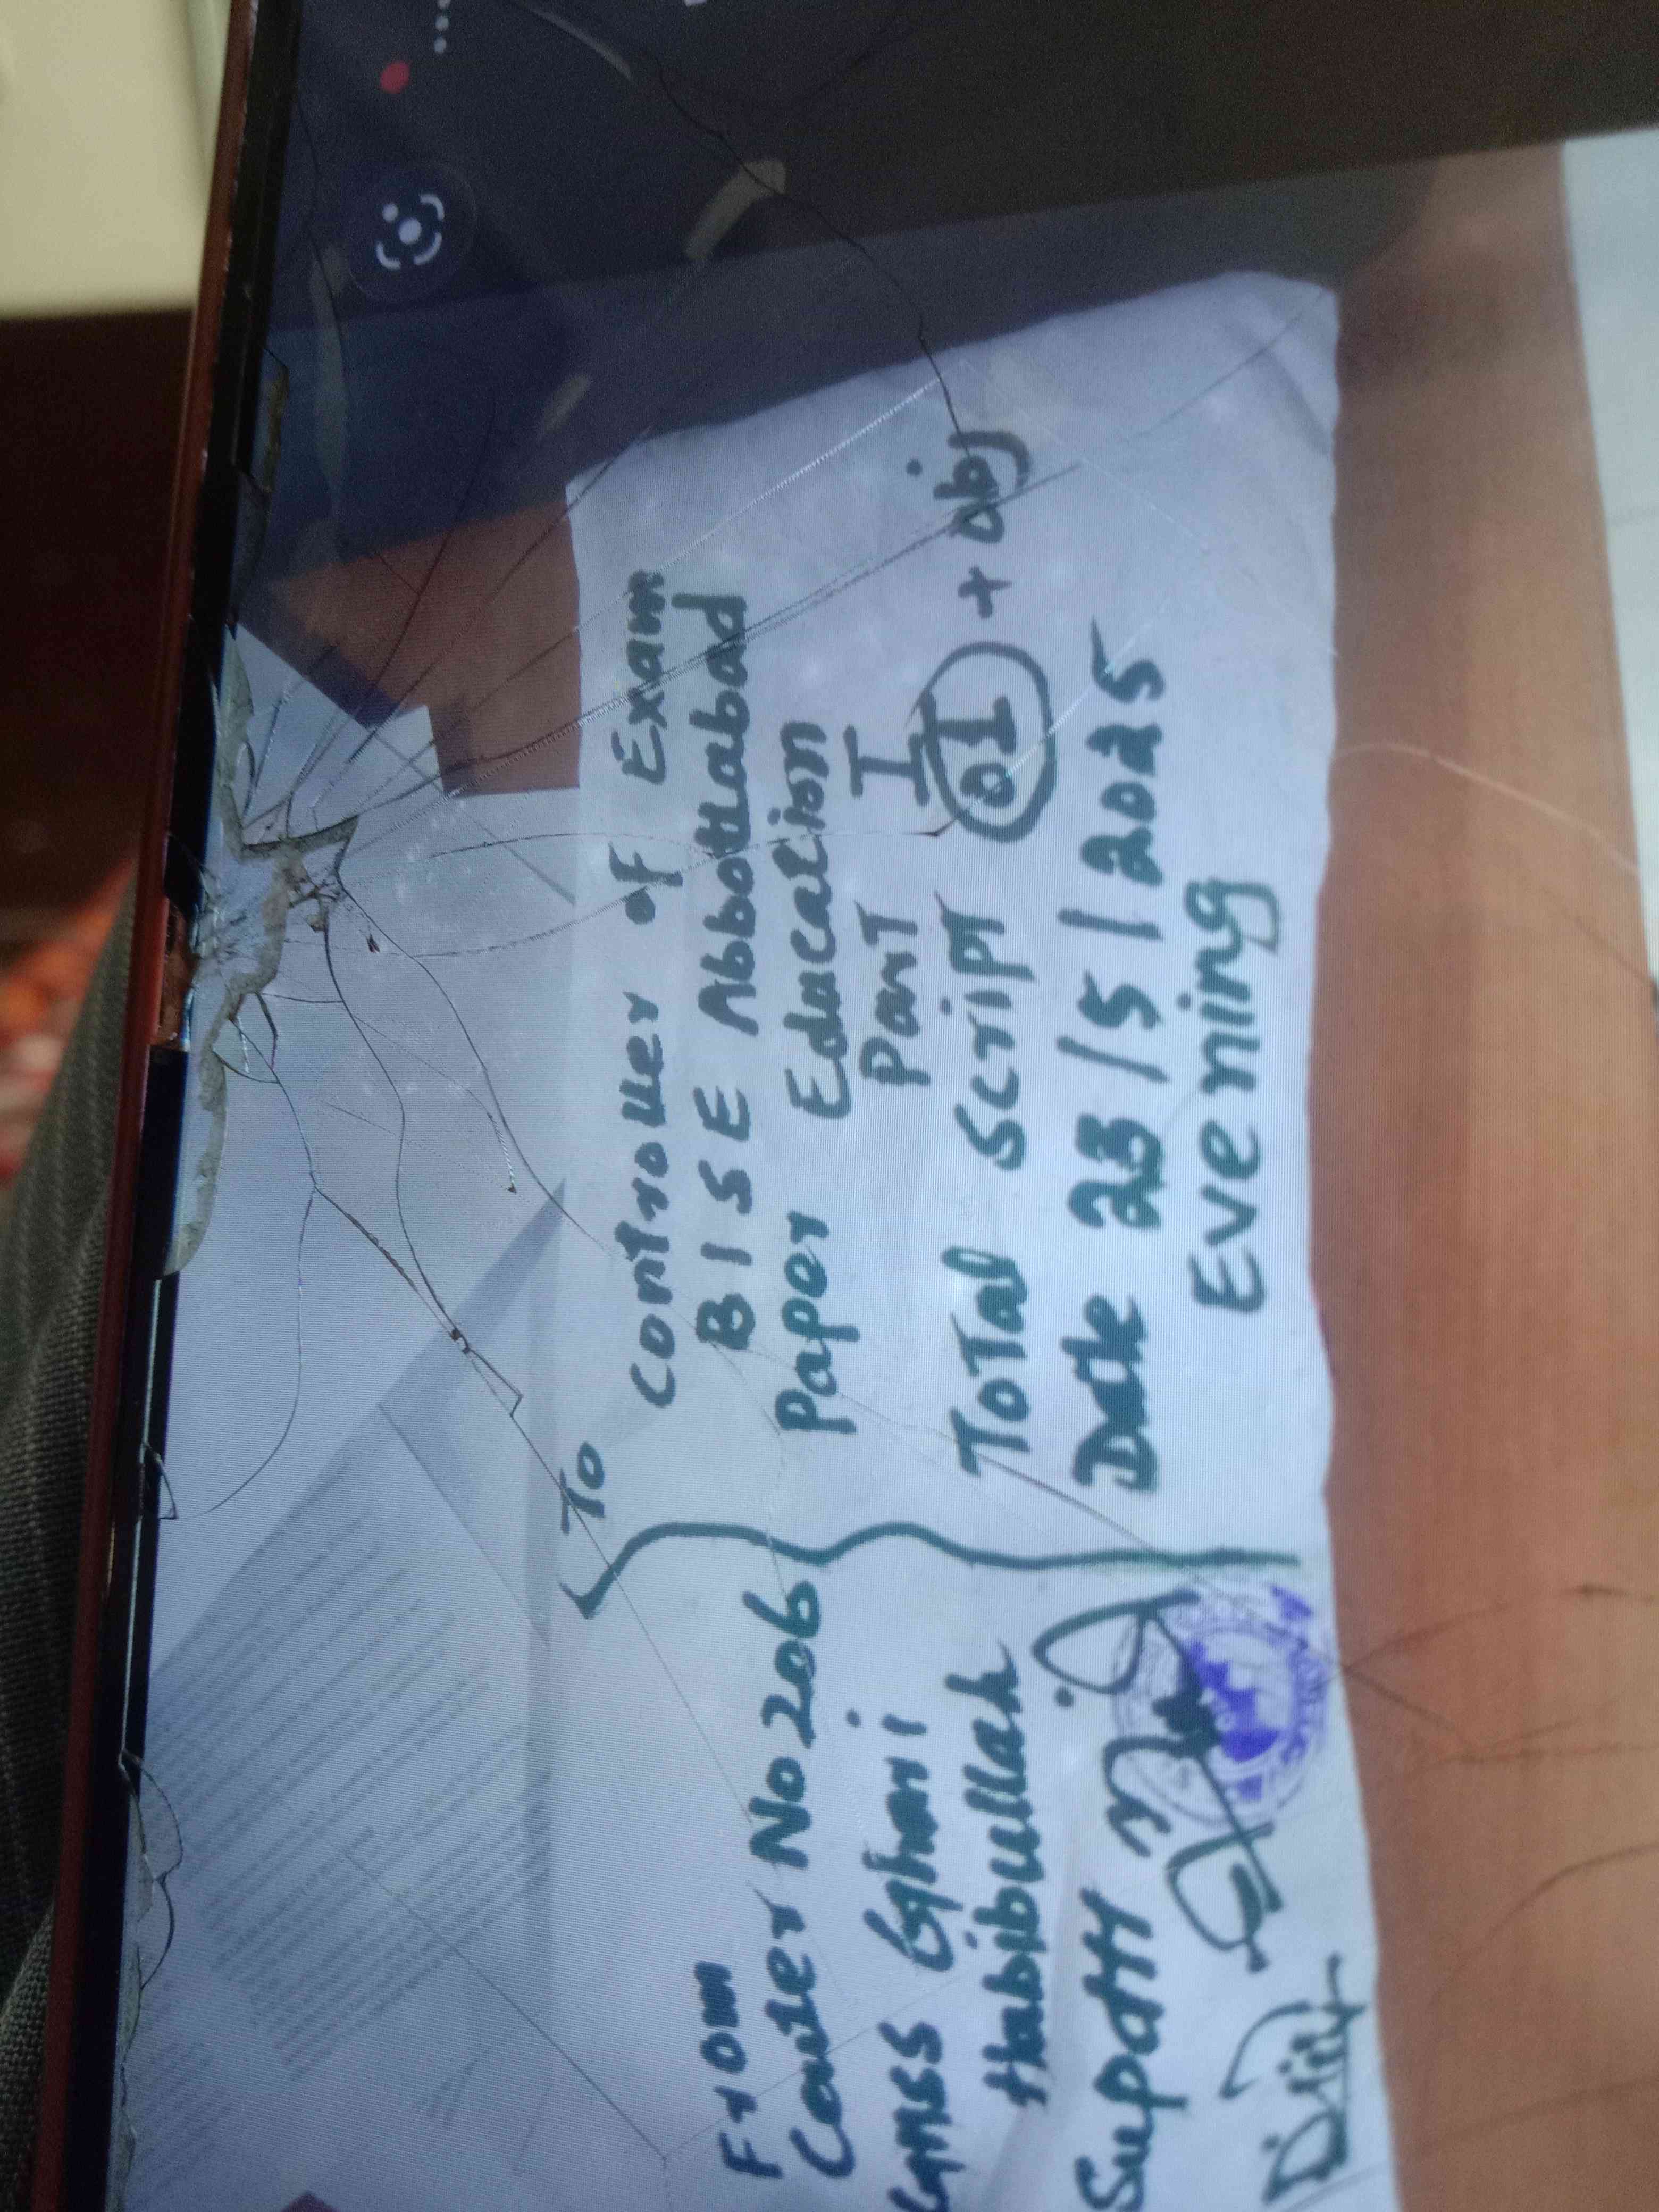 To
controller of Exam
BISE Abbottabad
Paper Education
Part I
Total script 01 + obj
Date 23/5/2025
Evening
From
Center No 206
GMSS Ghani
Habibullah
Supdtt